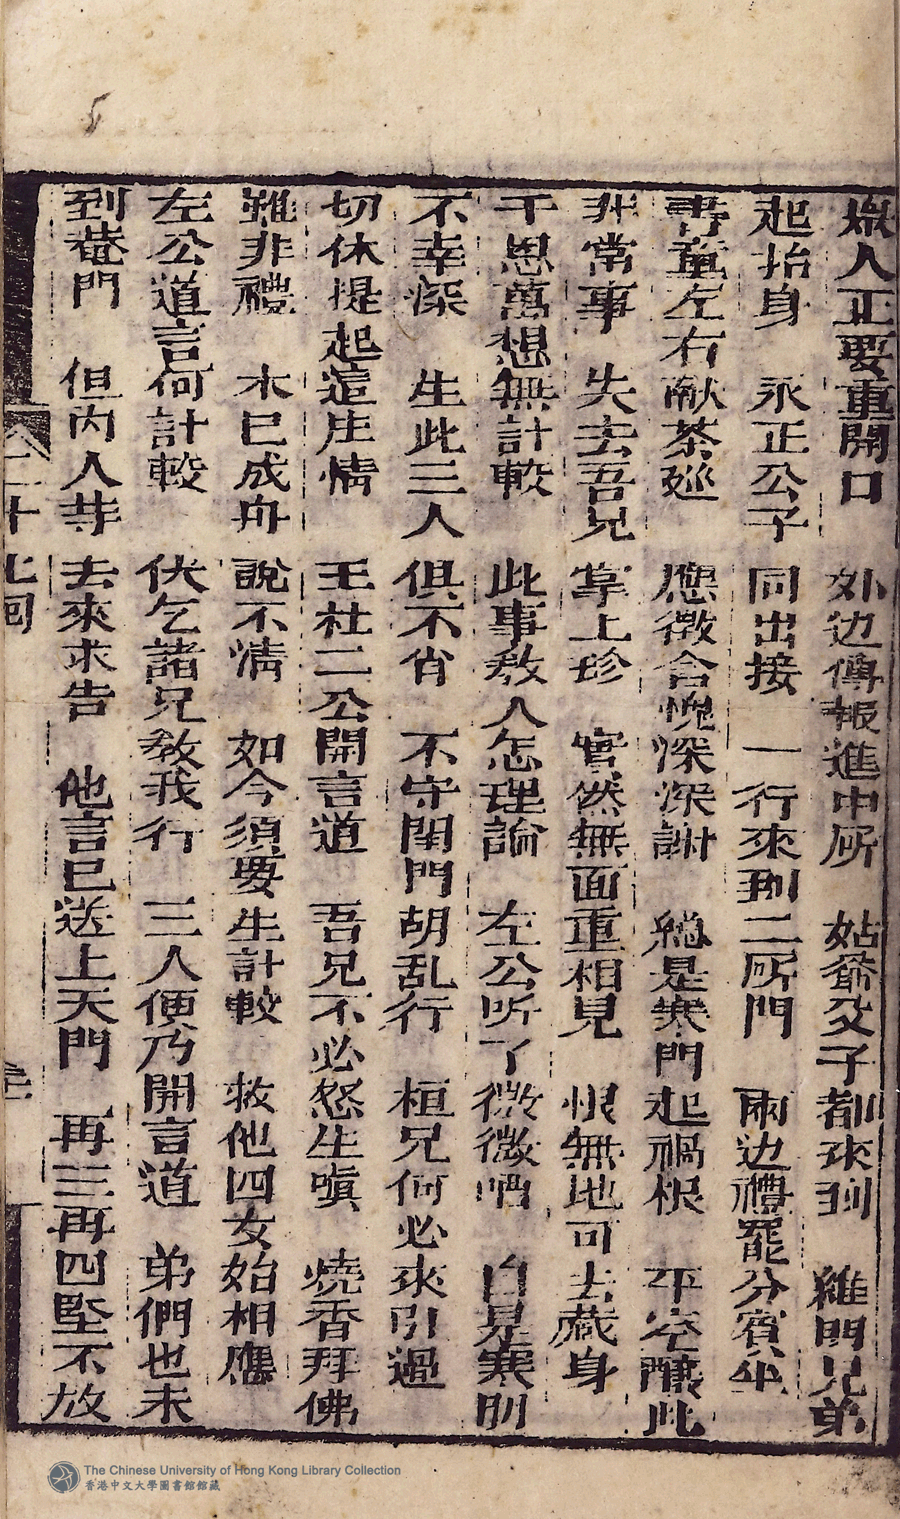 嫂人正要重開口 外边傳報進中所 姑爺父子都來到 維門兄弟
起抬身 永正公子同出接 一行來到二所門 兩边禮罷分賓坐
書童左右献茶廵 應徴含愧深深謝 總是寒門起禍根 平空釀此
非常事 失去吾兄掌上珍 實然無面重相見 恨無地可去藏身
千思萬想無計較 此事教人怎理論 左公听了微微哂 自是寒明
不幸深 生此三人俱不肖 不守閨門胡乱行 桓兄何必來引過
切休提起這庄情 王杜二公開言道 吾兄不必怒生嗔 燒香拜佛
雖非禮 木已成舟說不清 如今須要生計較 救他四女始相應
左公道言何計較 伏乞諸兄教我行 三人便乃開言道 弟們也未
到菴門 但内人等去來求告 他言已送上天門 再三再四堅不放
二十七回
The Chinese University of Hong Kong Library Collection
香港中文大學圖書館館藏